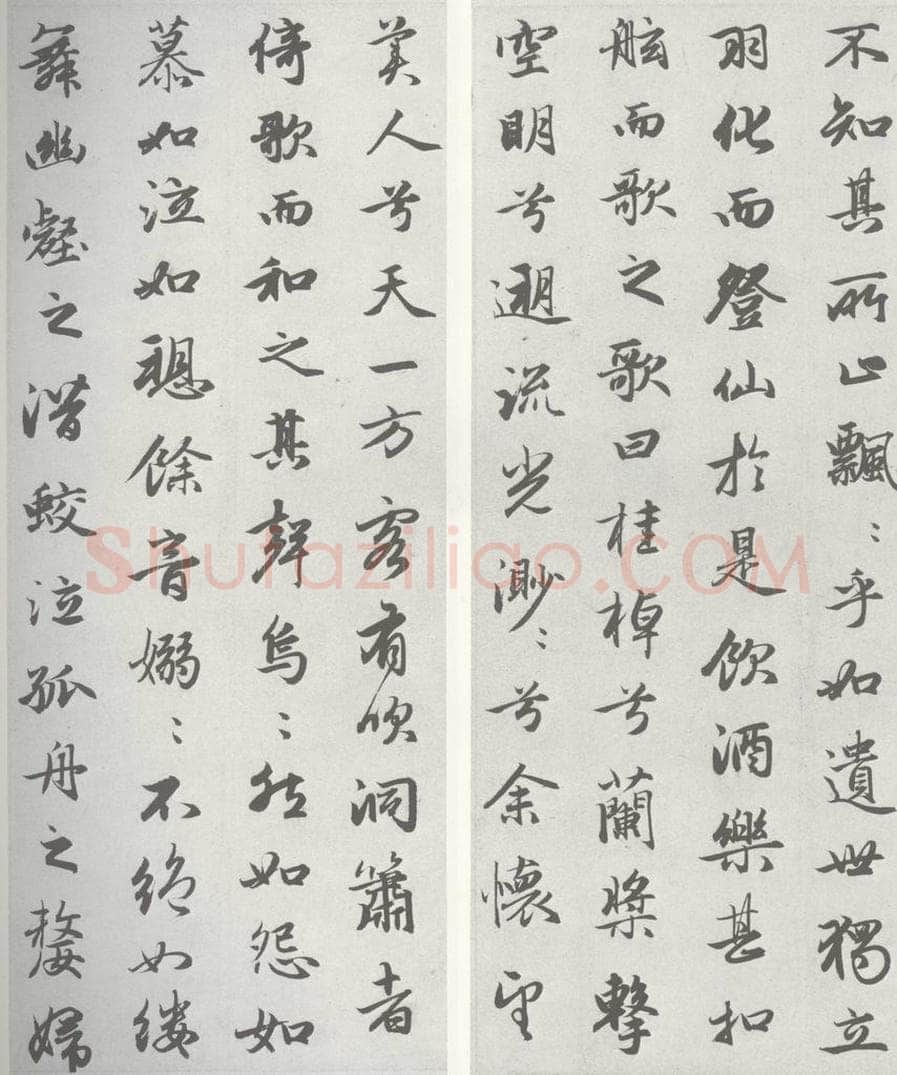 不知其所止飄〻乎如遺世獨立
羽化而登仙於是飲酒樂甚扣
舷而歌之歌曰桂棹兮蘭槳擊
空明兮遡流光渺〻兮余懷望
美人兮天一方客有吹洞簫者
倚歌而和之其聲烏〻然如怨如
慕如泣如愬餘音嫋〻不絕如縷
舞幽壑之潛蛟泣孤舟之嫠婦
Shufaziliao.COM